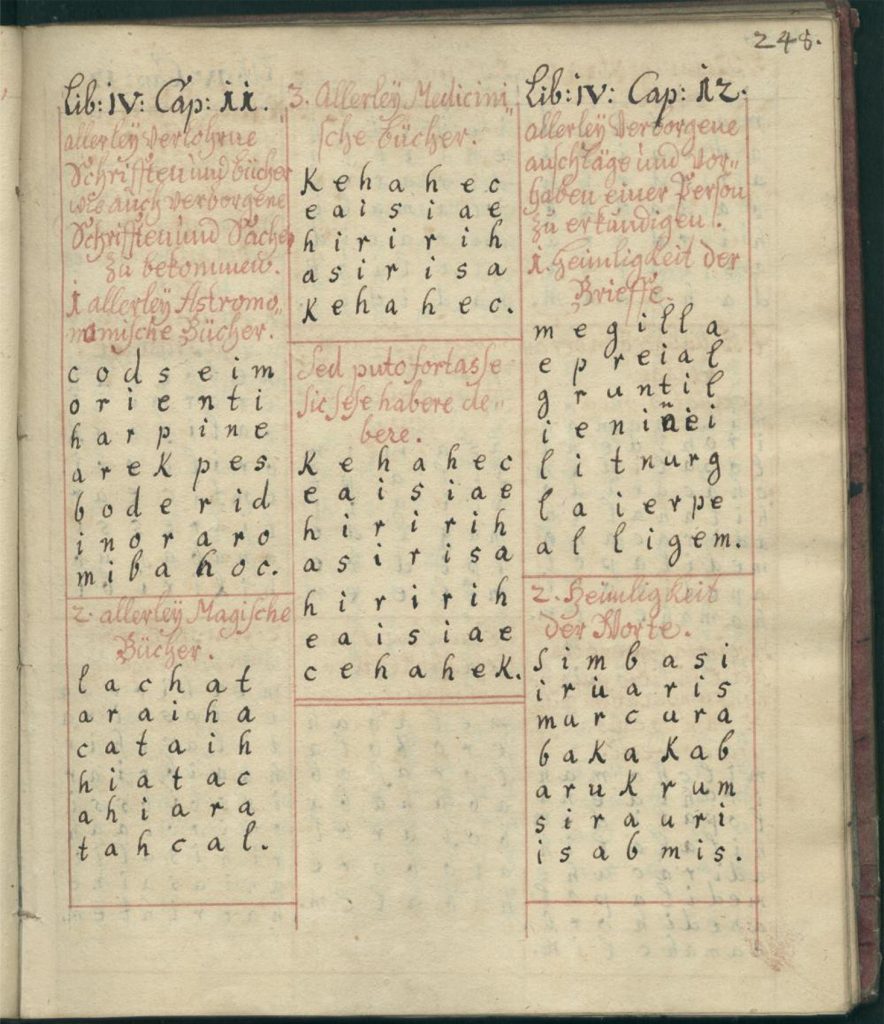 248.
Lib: IV: Cap: II.
allerleÿ verlohrne
Schrifften und Bücher
wie auch verborgene
Schrifften und Sachen
zu bekommen.
1 allerleÿ Astromo„
nomische Bücher.
c o d s e i m
o r i e n t i
h a r p i n e
a r e K p e s
b o d e r i d
i n o r a r o
m i b a h o c.
2. allerleÿ Magische
Bücher.
l a c h a t
a r a i h a
c a t a i h
h i a t a c
a h i a r a
t a h c a l.
3. Allerleÿ Medicini„
sche Bücher.
K e h a h e c
e a i s i a e
h i r i r i h
a s i r i s a
K e h a h e c.
Sed puto fortasse
sic sese habere de„
bere.
K e h a h e c
e a i s i a e
h i r i r i h
a s i r i s a
h i r i r i h
e a i s i a e
c e h a h e K.
Lib: IV: Cap: 12.
allerleÿ verborgene
anschläge und vor„
haben einer Person
zu erkundigen.
1. Heimligkeit der
Brieffe.
m e g i l l a
e p r e i a l
g r u n t i l
i e n i n e i
l i t n u r g
l a i e r p e
a l l i g e m.
2. Heimligkeit
der Worte.
S i m b a s i
i r u a r i s
m a r c a r a
b a K a K a b
a r u K r u m
s i r a u r i
i s a b m i s.